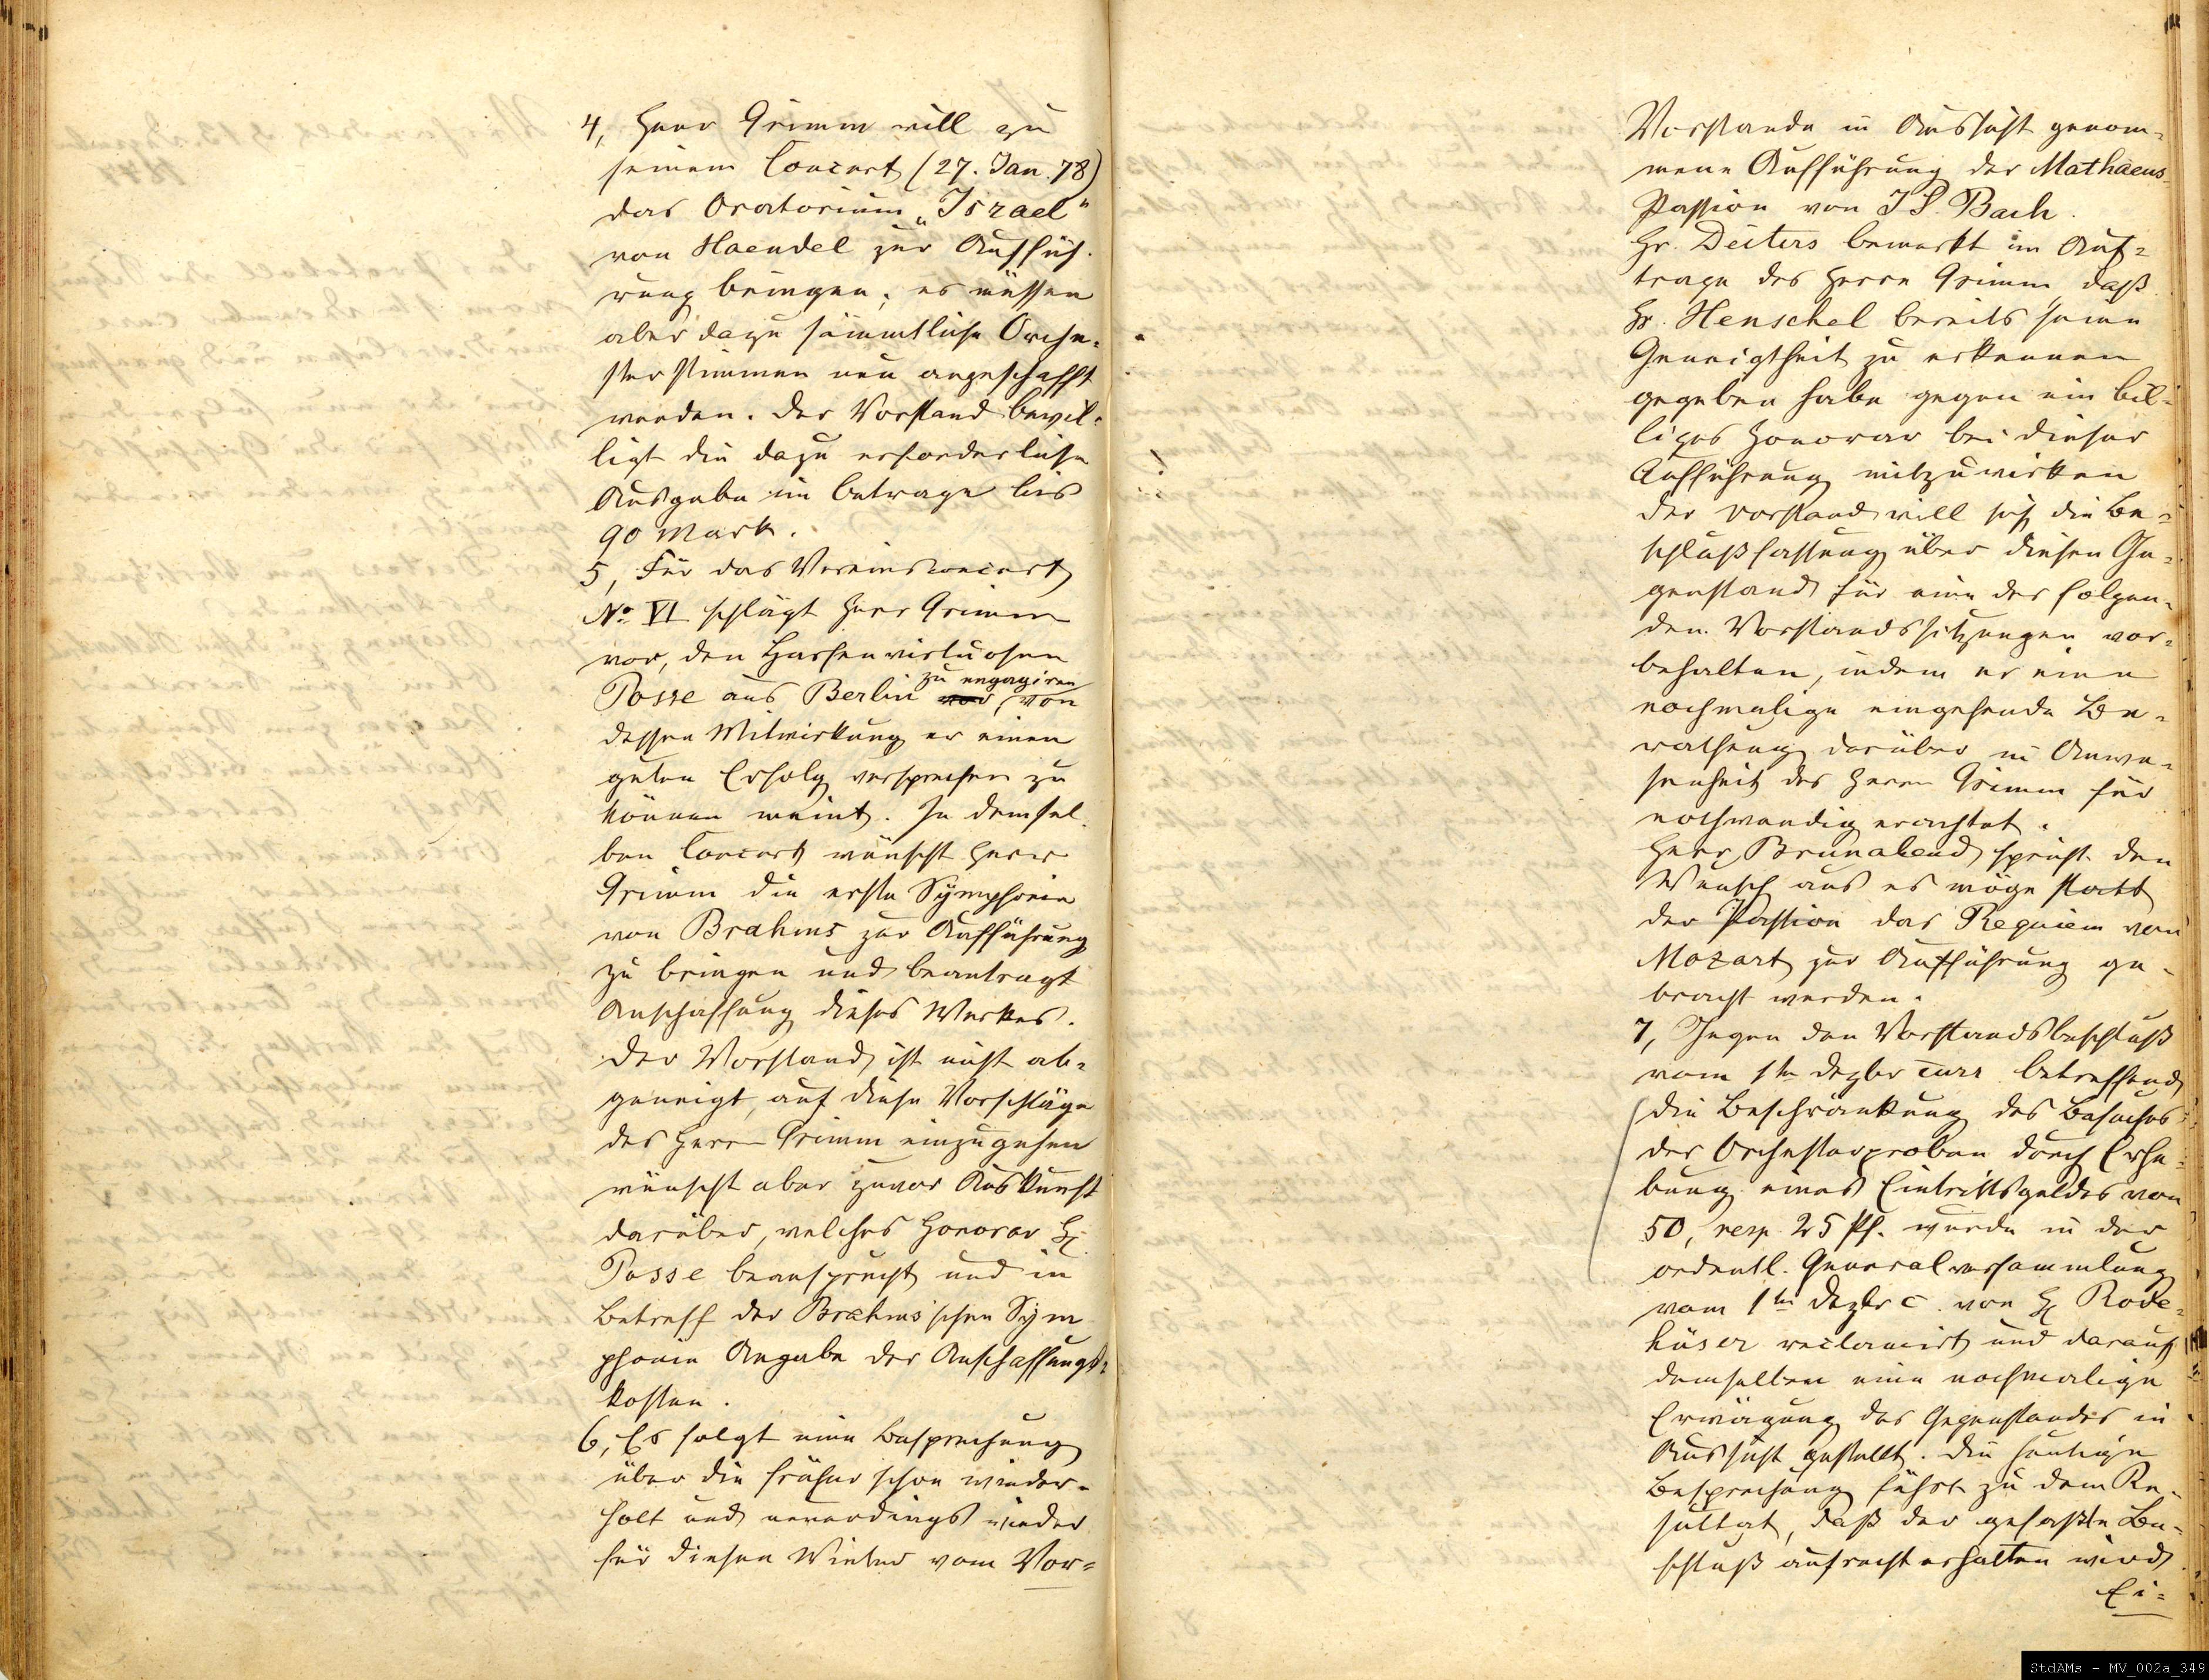 4, Herr Grimm will zu
seinem Concert (27. Jan. 78)
das Oratorium „Israel"
von Haendel zur Auffüh-
rung bringen; es müssen
aber dazu sämmtliche Orche-
ster stimmen neu angeschafft
werden. Der Vorstand bewil-
ligt die dazu erforderliche
Ausgabe im Betrage bis
90 Mark.
5, Für das Vereinsconcert
No. VI schlägt Herr Grimm
vor, den Harfenvirtuosen
zu engagiren
Posse aus Berlin vor, von
dessen Mitwirkung er einen
guten Erfolg versprechen zu
können meint. In demsel-
ben Concert wünscht Herr
Grimm die erste Symphonie
von Brahms zur Aufführung
zu bringen und beantragt
Anschaffung dieses Werkes.
Der Vorstand ist nicht ab-
geneigt, auf diese Vorschläge
des Herrn Grimm einzugehen
wünscht aber zuvor Auskunft
darüber, welches Honorar H.
Posse beansprucht und in
Betreff der Brahms'schen Sym
phonie Angabe der Anschaffungs-
kosten.
6, Es folgt eine Besprechung
über die früher schon wieder-
holt und neuerdings wieder
für diesen Winter vom Vor-
Vorstande in Aussicht genom-
mene Aufführung der Mathaeus-
Passion von J S. Bach.
Hr. Deiters bemerkt im Auf-
trage des Herrn Grimm, daß
Hr. Henschel bereits seine
Geneigtheit zu erkennen
gegeben habe gegen ein bil-
liges Honorar bei dieser
Aufführung mitzuwirken
Der Vorstand will sich die Be-
schlußfassung über diesen Ge-
genstand für eine der folgen-
den Vorstandssitzungen vor-
behalten, indem er eine
nochmalige eingehende Be-
rathung darüber in Anwe-
senheit des Herrn Grimm für
nothwendig erachtet.
Herr Brunabend spricht den
Wunsch aus es möge statt
der Passion das Requiem von
Mozart zur Aufführung ge-
bracht werden.
7, Gegen den Vorstandsbeschluß
vom 1ten Dezbr curr betreffend
die Beschränkung des Besuches
der Orchesterproben durch Erhe-
bung eines Eintrittsgeldes von
50, resp. 25 Pf. wurde in der
ordentl. Generalversammlung
vom 1ten Dezbr c. von H. Rode-
hüser reclamirt und darauf
demselben eine nochmalige
Erwägung des Gegenstandes in
Aussicht gestellt. Die heutige
Besprechung führt zu dem Re-
sultat, daß der gefaßte Be-
schluß aufrecht erhalten wird
Ei-
StdAMs - MV_002a_349